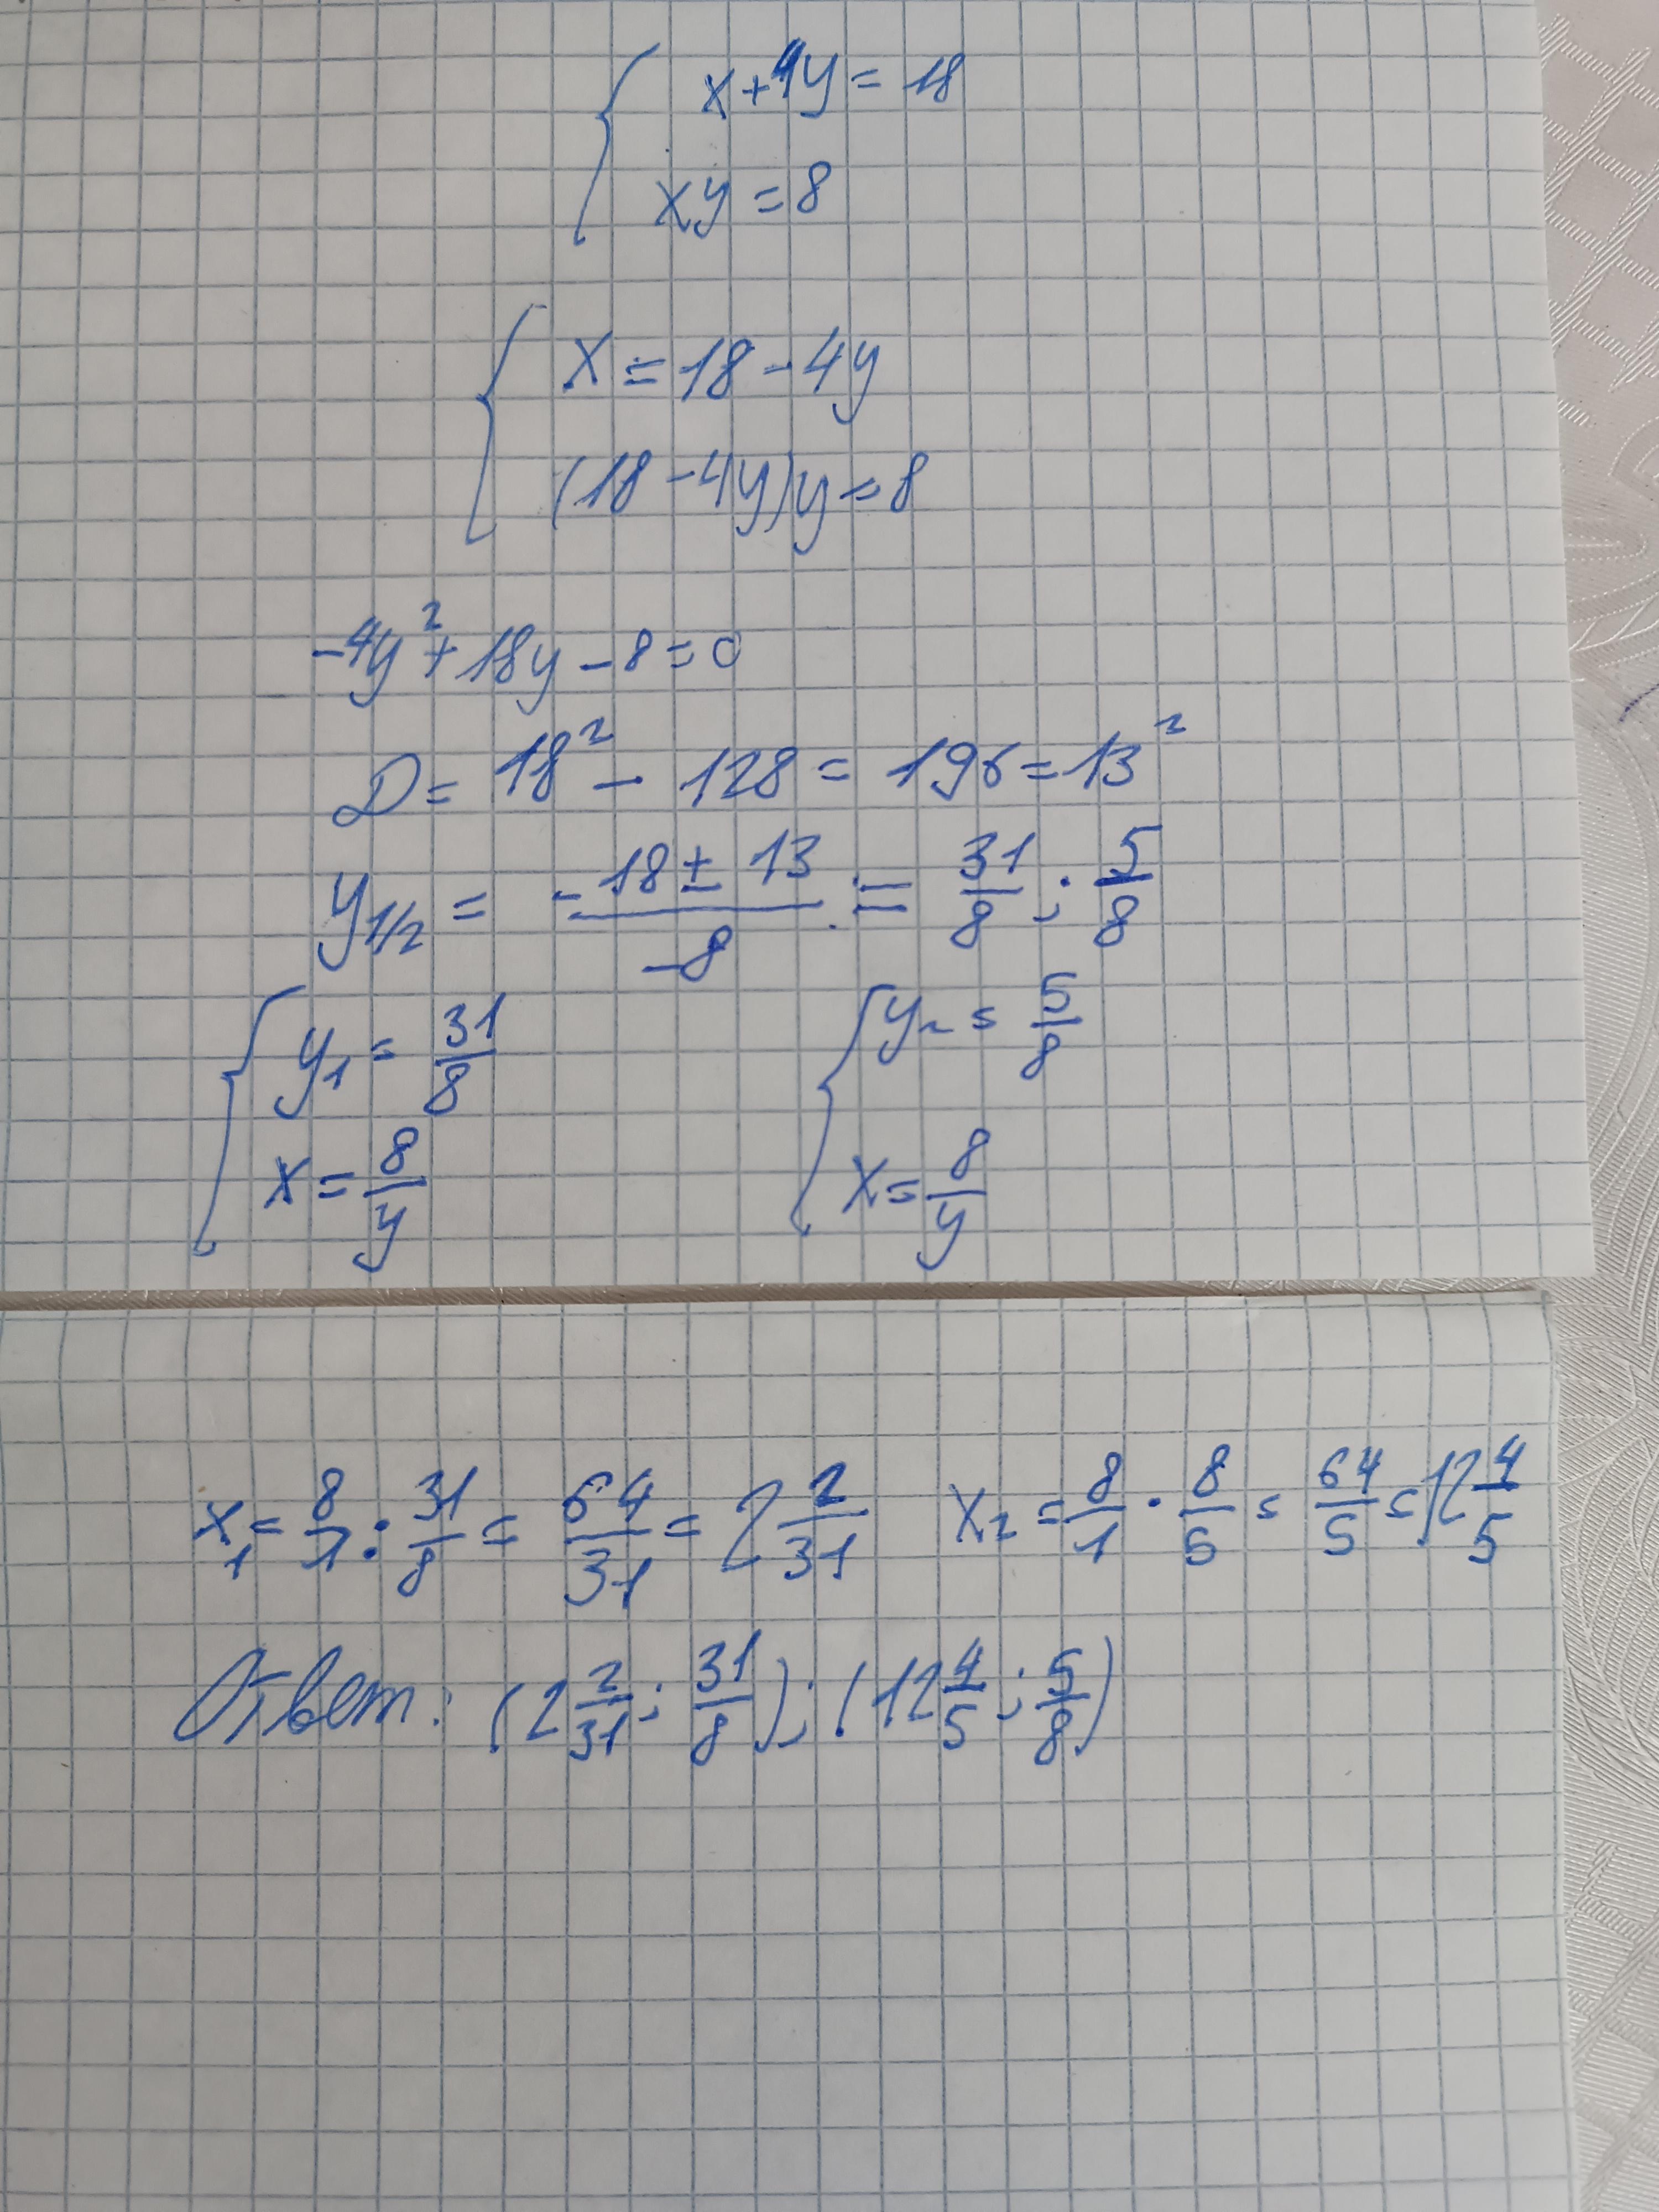 x+4y=18
xy=8
x=18-4y
(18-4y)y=8
-4y²+18y-8=0
D=18²-128=196=13²
y1/2 = (-18±13)/-8 = 31/8; 5/8
y1 = 31/8
x = 8/y
y2 = 5/8
x = 8/y
x1 = 8/1 : 31/8 = 64/31 = 2 2/31
x2 = 8/1 · 8/5 = 64/5 = 12 4/5
Ответ: (2 2/31; 31/8); (12 4/5; 5/8)